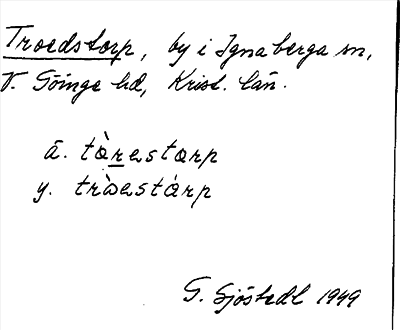 Troedstorp, by i Ignaberga sn,
V. Göinge hd, Krist. län.
ä. tàrestorp
y. tròestàrp
G. Sjöstedt 1949